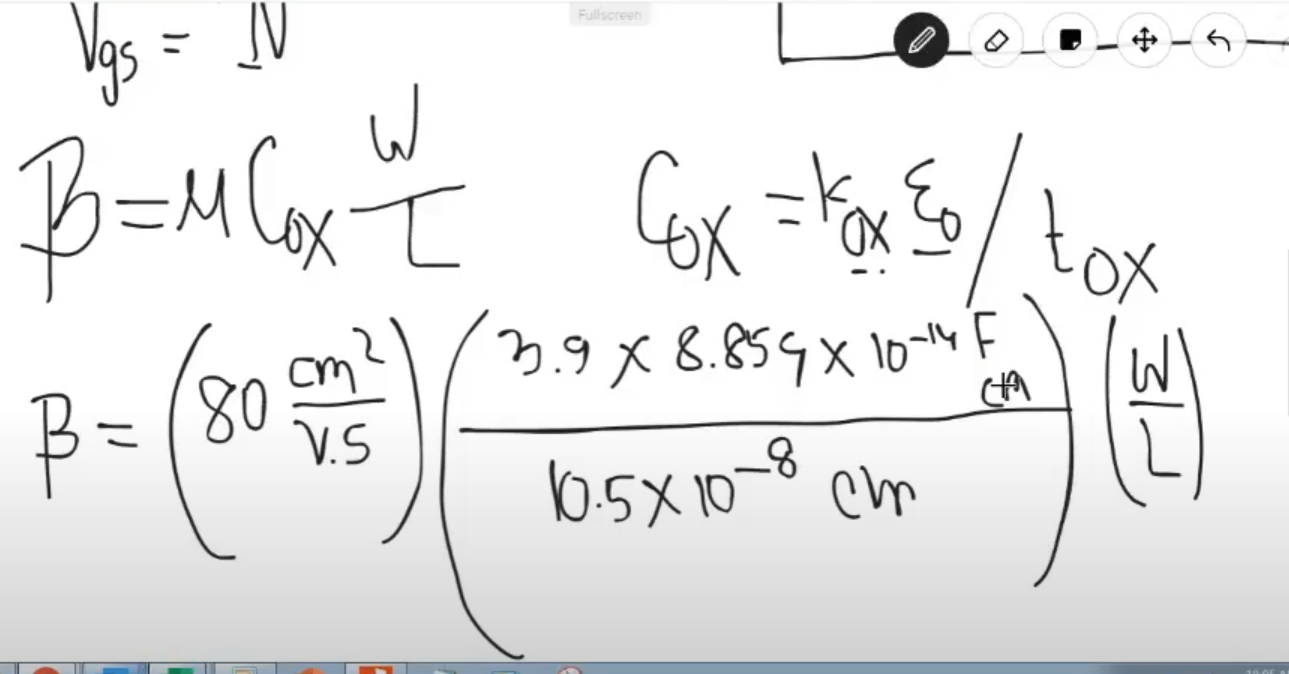 Fullscreen
Vgs = 1V
β = μ Cox W/L
Cox = kox ε0 / tox
β = (80 cm²/V.S) (3.9 × 8.854 × 10⁻¹⁴ F/cm / 10.5 × 10⁻⁸ cm) (W/L)